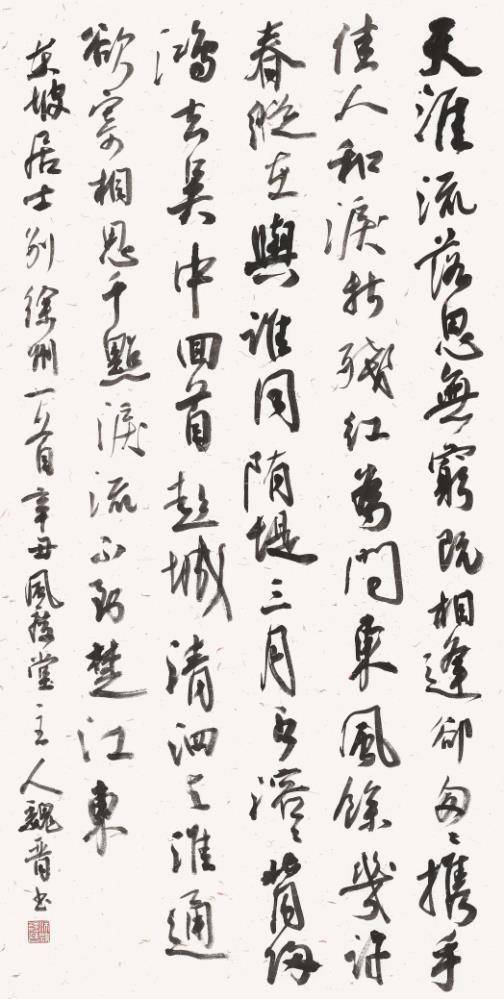 天涯流落思無窮既相逢卻匆〻攜手
佳人和淚折殘紅為問東風餘幾許
春縱在與誰同隋堤三月水溶〻背歸
鴻去吳中回首彭城清泗与淮通
欲寄相思千點淚流不到楚江東
東坡居士別徐州一首辛丑風堂主人魏晋書